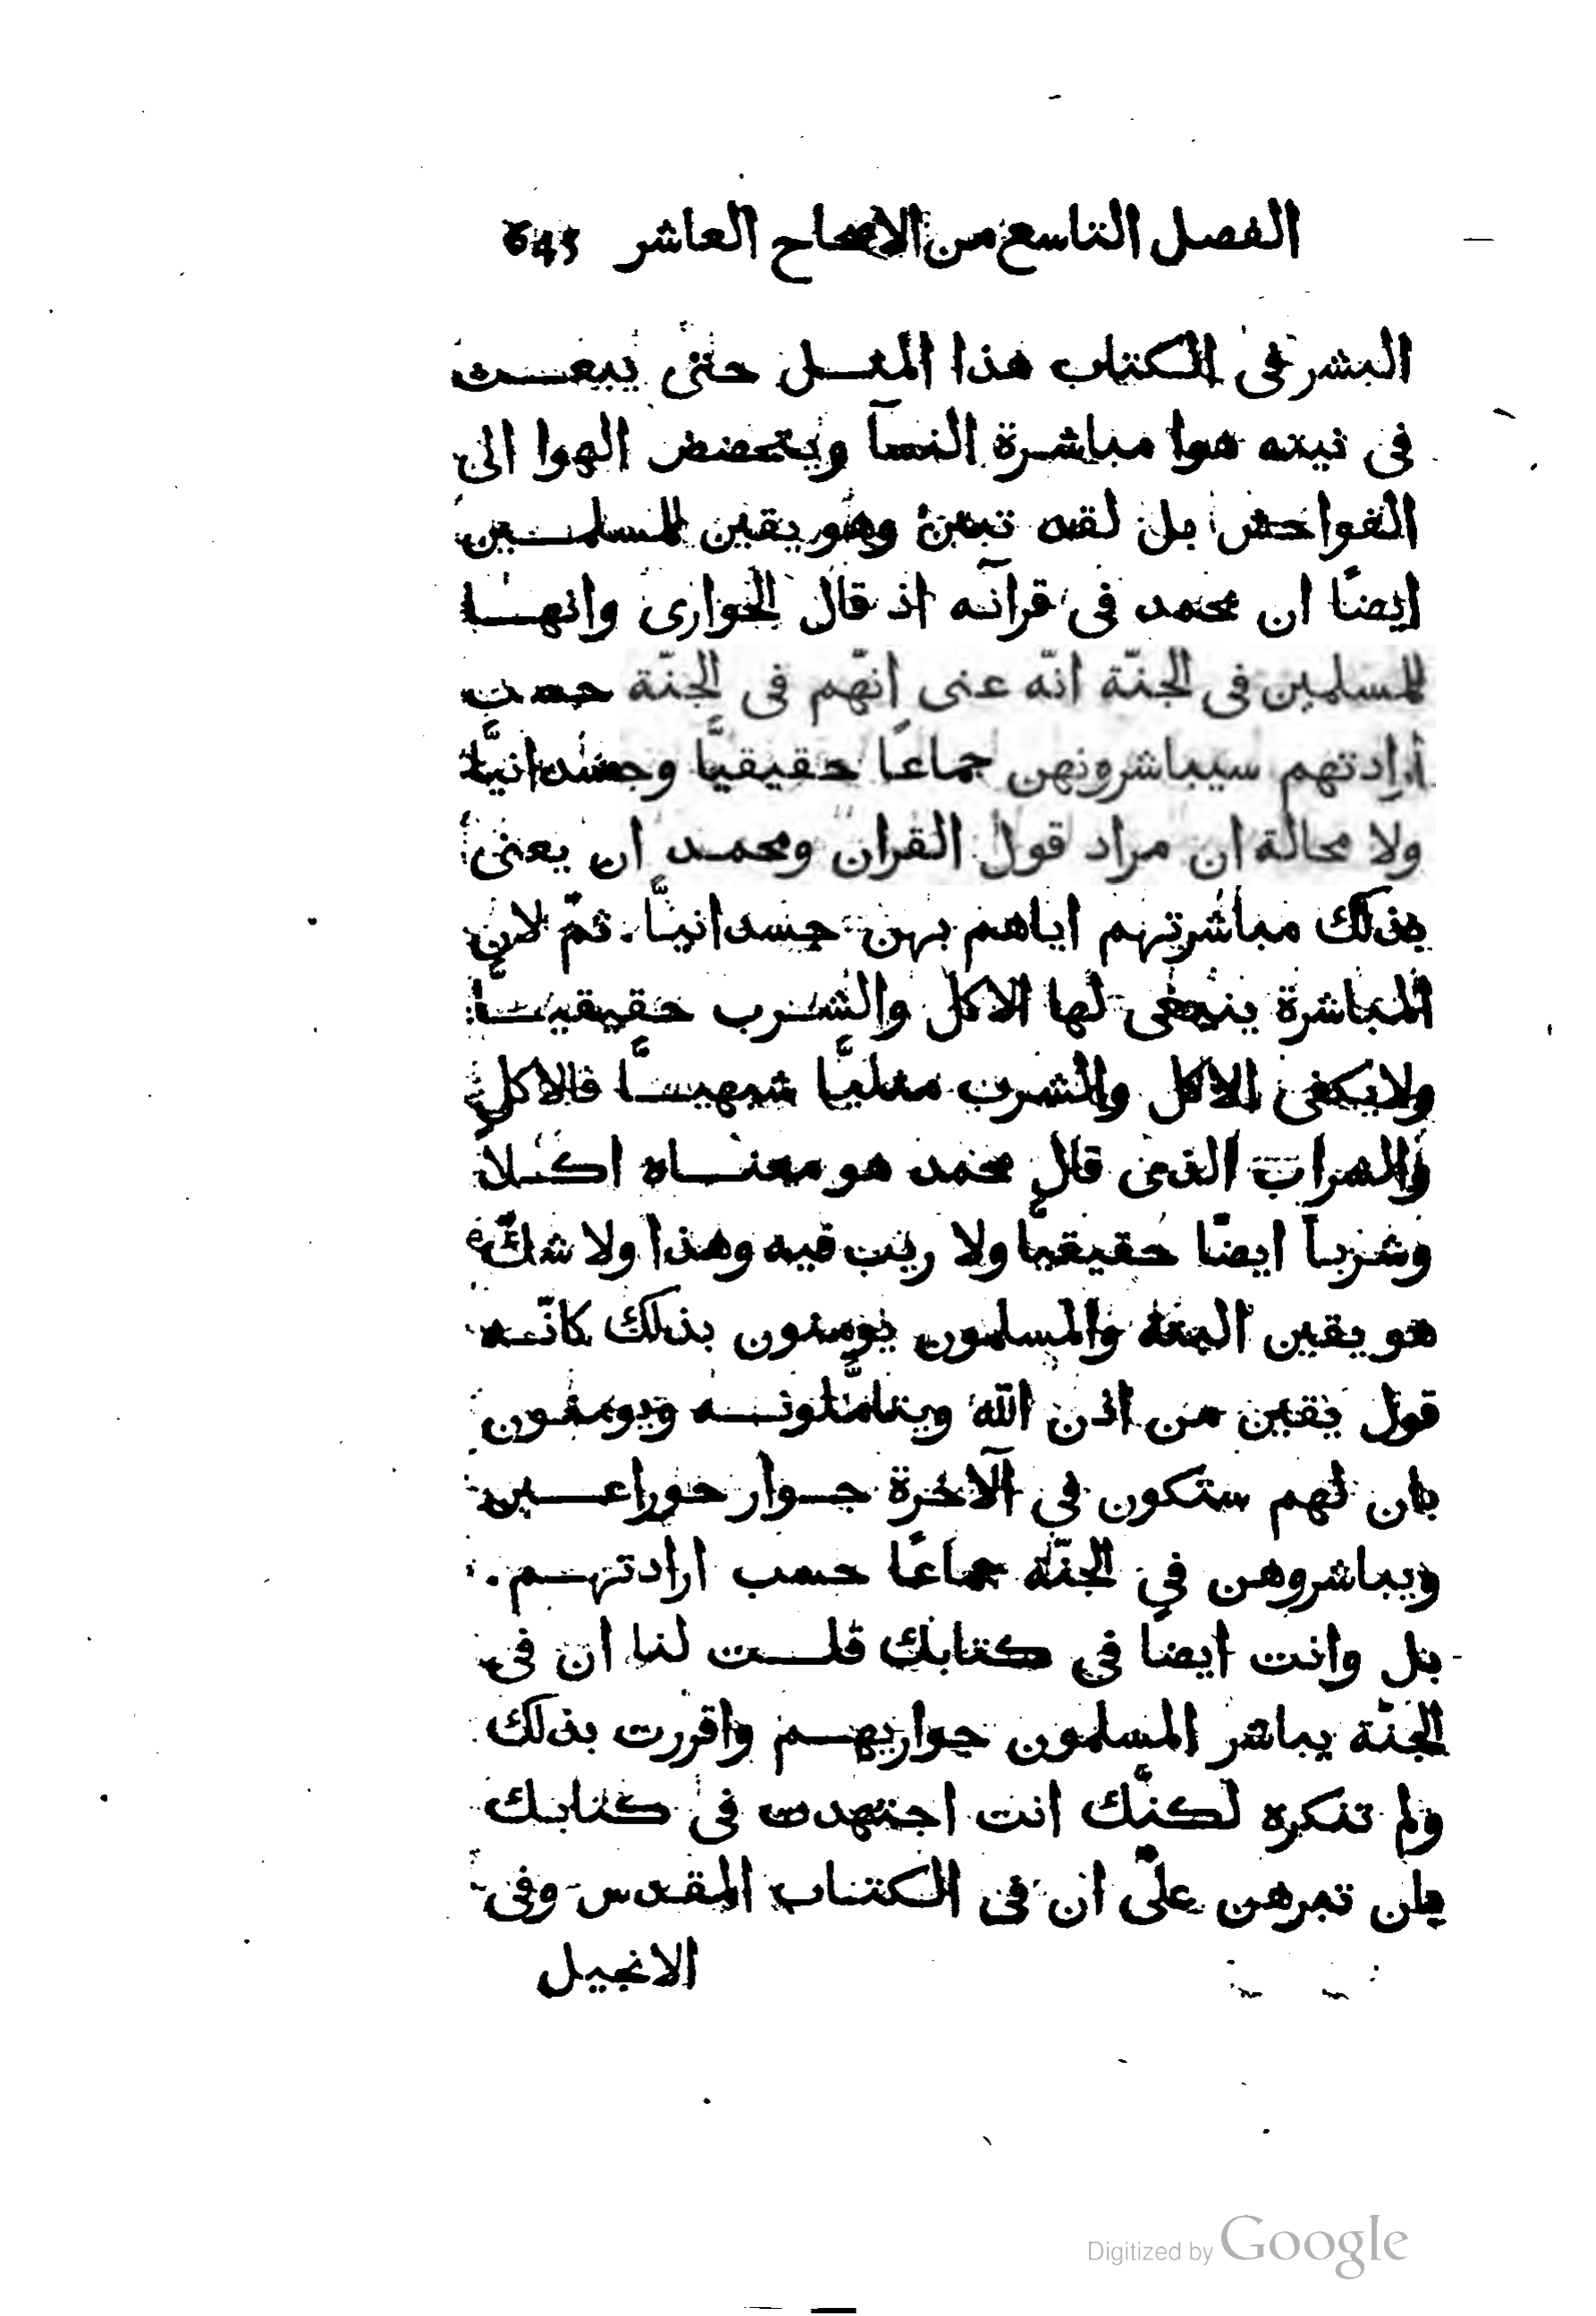 الفصل التاسع من الاصحاح العاشر 645
البشر فى الكتاب هذا المثل حتى يبعث
فى نيته هوا مباشرة النسآ ويتحضض الهوا الى
الفواحش بل لقد تبين وهو يقين للمسلمين
ايضًا ان محمد فى قرآنه اذ قال الجوارى وانها
للمسلمين فى الجنّة انّه عنى انّهم فى الجنّة حسب
ارادتهم سيباشرونهن جماعًا حقيقيًّا وجسدانيًّا
ولا محالة ان مراد قول القران ومحمد ان يعنى
بذلك مباشرتهم اياهم بهن جسدانيًّا. ثمّ لان
المباشرة ينبغى لها الاكل والشرب حقيقيًّا
ولا يكفى الاكل والشرب مثليًّا شبهيًّا فالاكل
والشراب الذى قال محمد هو معناه اكلاً
وشربًا ايضًا حقيقيًّا ولا ريب فيه وهذا ولا شكّ
هو يقين البتة والمسلمون يومنون بذلك كانّه
قول يقين من اذن الله ويتامّلونه ويومنون
بان لهم ستكون فى الآخرة جوار حورا عين
ويباشروهن فى الجنّة جماعًا حسب ارادتهم.
بل وانت ايضًا فى كتابك قلت لنا ان فى
الجنّة يباشر المسلمون جواريهم واقررت بذلك
ولم تنكره لكنّك انت اجتهدت فى كتابك
بان تبرهن علىّ ان فى الكتاب المقدس وفى
الانجيل
Digitized by Google